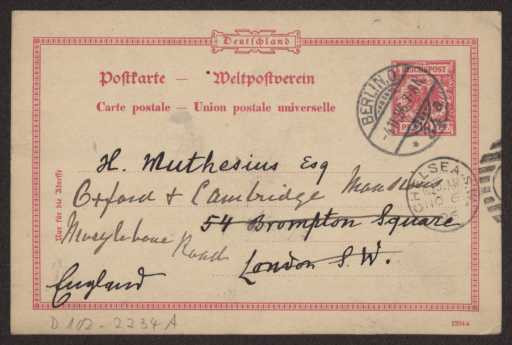 Deutschland
Postkarte — Weltpostverein
Carte postale — Union postale universelle
REICHSPOST
BERLIN
CHELSEA S.W.
Nur für die Adresse
H. Muthesius Esq
Oxford & Cambridge Mansions
54 Brompton Square
Marylebone Road
London S.W.
England
D 102-2234 A